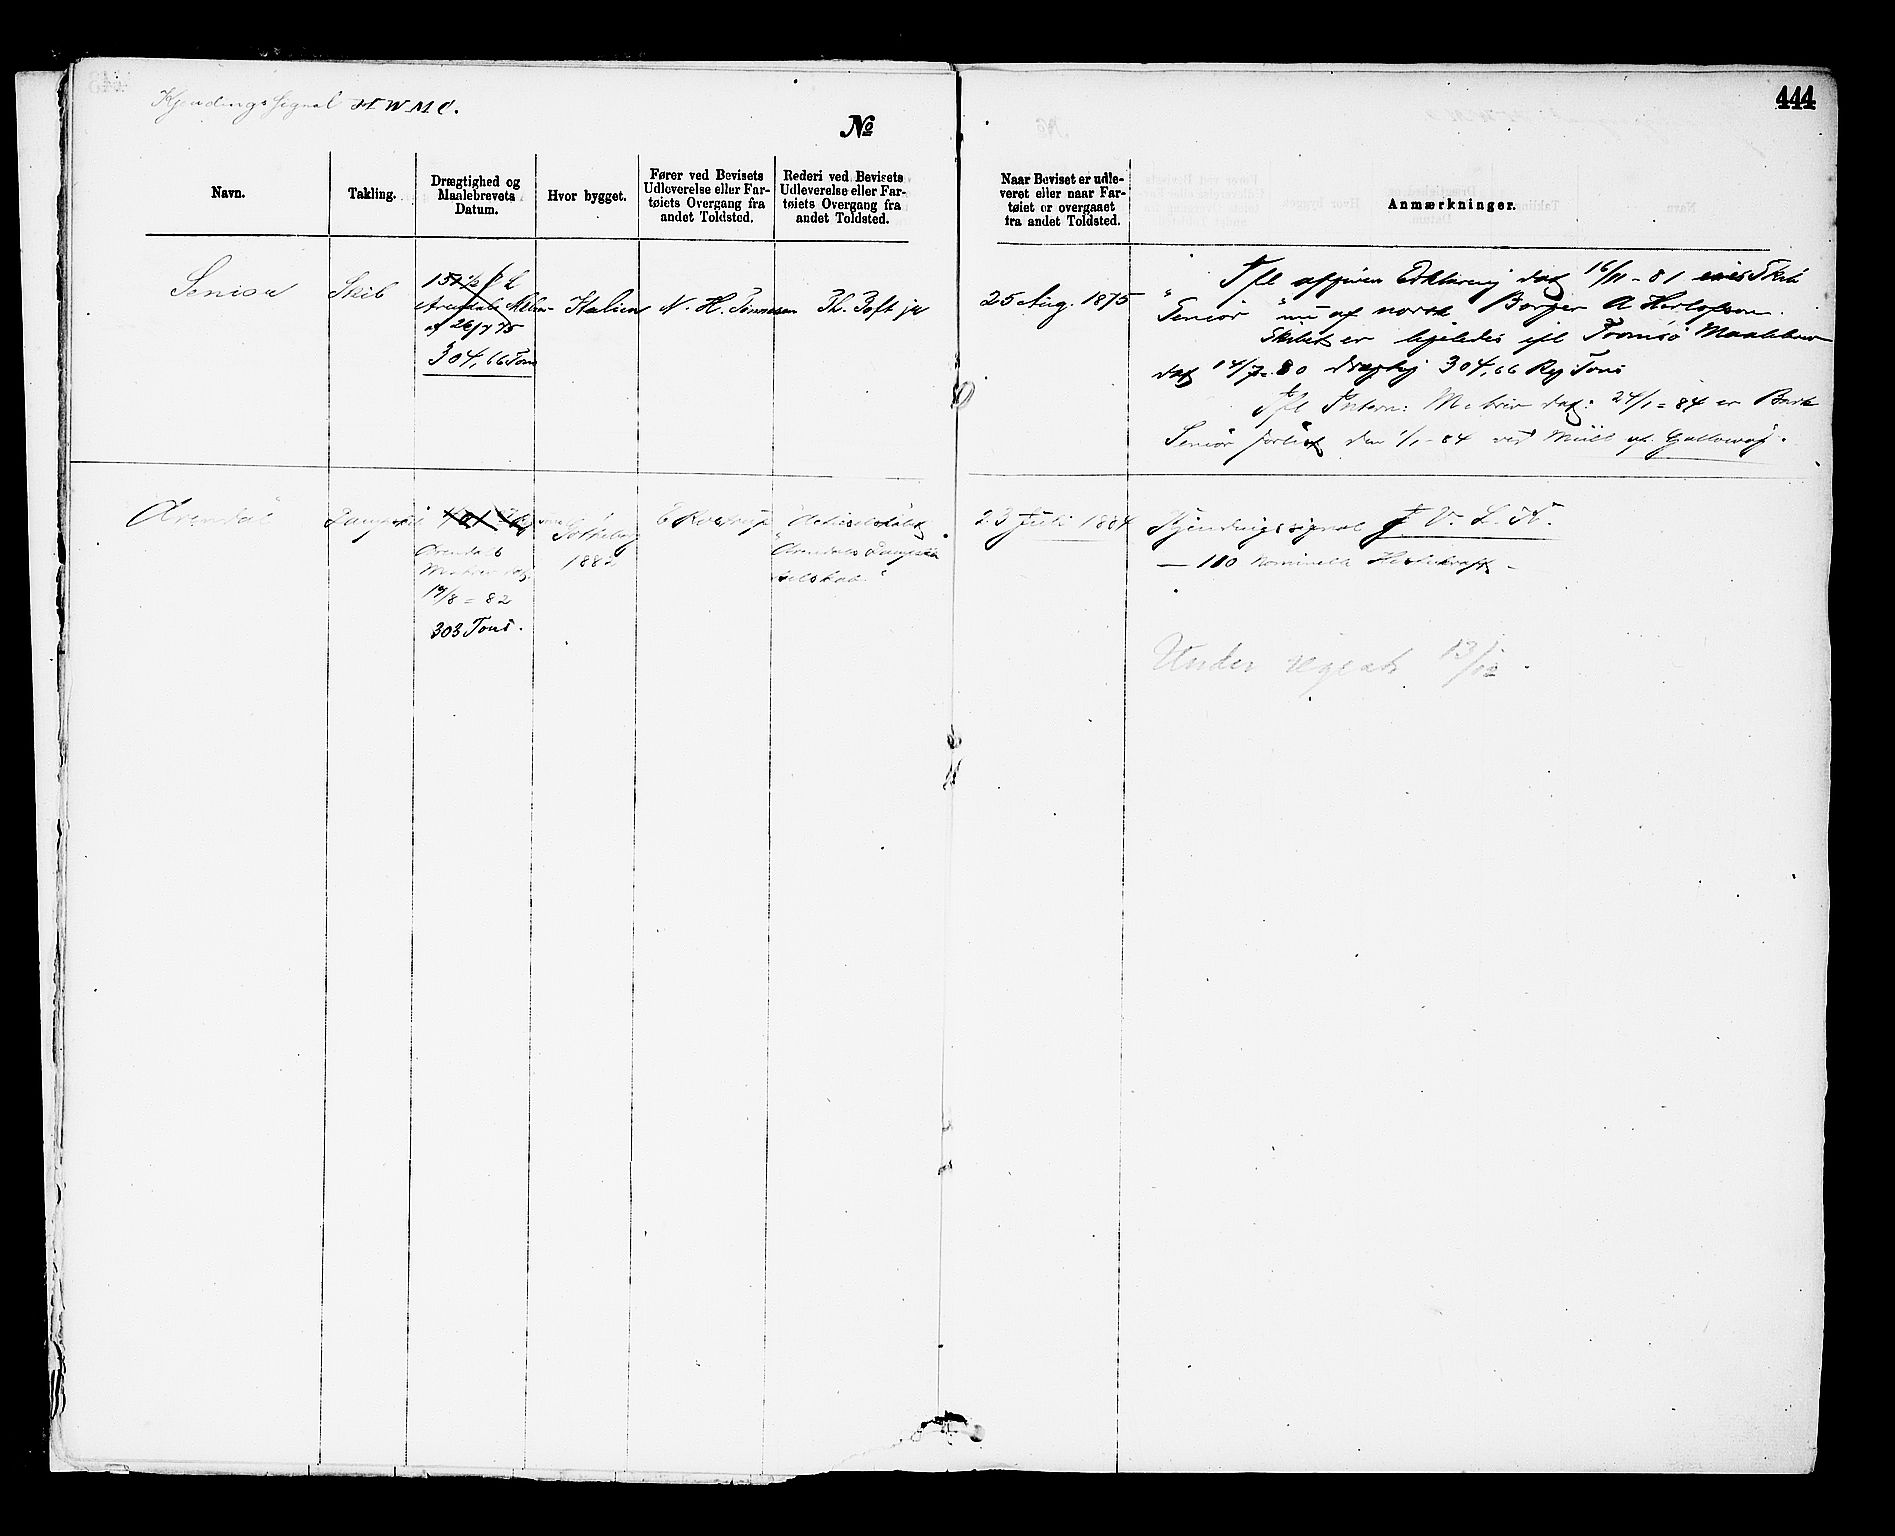 444
Kjendings Signal H W M C.
No
Navn.
Takling.
Drægtighed og
Maalebrevets
Datum.
Hvor bygget.
Fører ved Bevisets
Udleverelse eller Far-
tøiets Overgang fra
andet Toldsted.
Rederi ved Bevisets
Udleverelse eller Far-
tøiets Overgang fra
andet Toldsted.
Naar Beviset er udle-
veret eller naar Far-
tøiet er overgaaet
fra andet Toldsted.
Anmærkninger.
Senior
Skib
151 ½
Arendals
af 26/7 75
304,66 Tons
Italien
N. H. Tønnesen
Th. Toft jr
25 Aug. 1875
Ifl afgiven Erklæring dat 16/11 - 81 eies Skib
"Senior" nu af norsk Borger A Herlofson.
Skibet er ligeledes ifl Tromsø Maalebrev
dat 14/7 - 80 drægtig 304,66 Reg Tons
Ifl Intern: M.brev dat: 24/1 - 84 er Bark
Senior forlist den 1/1 - 84 ved Mull of Galloway.
Arendal
Arendals
M.brev dat.
14/8 - 82
303 Tons.
Gøtheborg
1882
E Rostrup
Actieselskabet
"Arendals Dampskibs
selskab"
23 Juli 1884
Kjendingssignal J V. L. K.
— 100 nominelle Hestekraft —
Under 13/